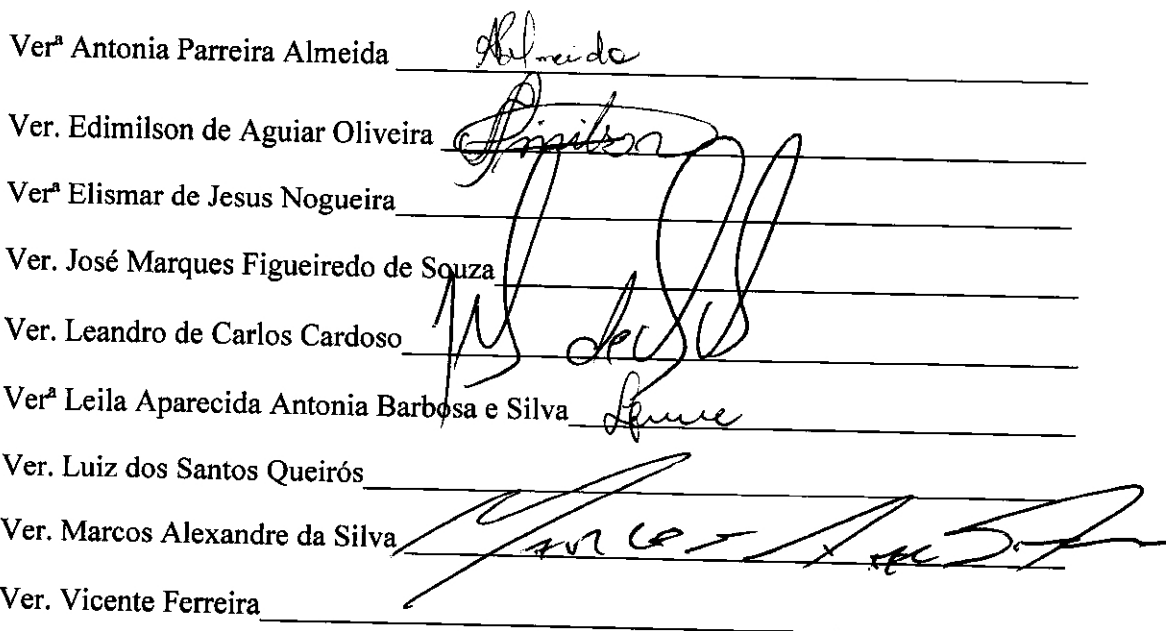 Verª Antonia Parreira Almeida Almeida
Ver. Edimilson de Aguiar Oliveira
Verª Elismar de Jesus Nogueira
Ver. José Marques Figueiredo de Souza
Ver. Leandro de Carlos Cardoso
Verª Leila Aparecida Antonia Barbosa e Silva
Ver. Luiz dos Santos Queirós
Ver. Marcos Alexandre da Silva
Ver. Vicente Ferreira